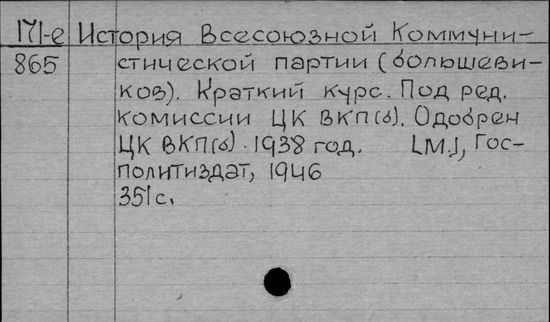 171-е История Всесоюзной Коммуни-
865 стической партии (большеви-
ков). Краткий курс. Под ред.
комиссии ЦК ВКП(б). Одобрен
ЦК ВКП(б). 1938 год. [М.], Гос-
политиздат, 1946
351 с.